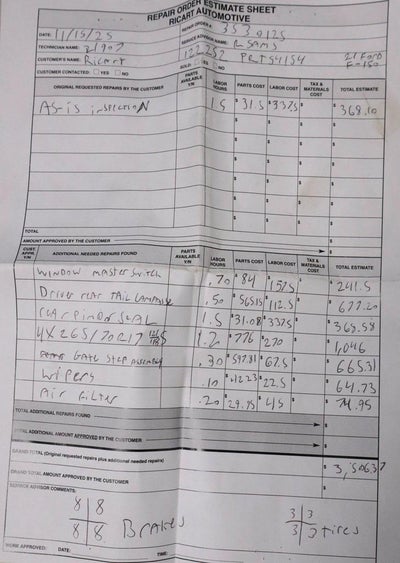 REPAIR ORDER ESTIMATE SHEET
RICART AUTOMOTIVE
DATE: 11/15/25 REPAIR ORDER #: 3530125
TECHNICIAN NAME: 21907 SERVICE ADVISOR NAME: R SAMS
CUSTOMER'S NAME: Ricart 122,252 PRT54154 21 Ford F-150
CUSTOMER CONTACTED: YES NO SOLD: YES NO
ORIGINAL REQUESTED REPAIRS BY THE CUSTOMER PARTS AVAILABLE Y/N LABOR HOURS PARTS COST LABOR COST TAX & MATERIALS COST TOTAL ESTIMATE
AS-is inspection 1.5 $31.5 $337.5 $ $368.10
TOTAL
AMOUNT APPROVED BY THE CUSTOMER
CUST. APPR. Y/N ADDITIONAL NEEDED REPAIRS FOUND PARTS AVAILABLE Y/N LABOR HOURS PARTS COST LABOR COST TAX & MATERIALS COST TOTAL ESTIMATE
WINDOW MASTER SWITCH .70 $84 $157.5 $ 241.5
Driver rear TAIL LAMP .50 565.15 $112.5 677.20
rear pinion SEAL 1.5 $31.08 $337.5 $368.58
4X 265/70R17 1.2 $776 $270 $1,046
GATE STEP ASSEMBLY .30 $597.81 $67.5 $665.31
Wipers .10 $42.23 $22.5 $64.73
Air Filter .20 $29.95 $45 $74.95
TOTAL ADDITIONAL REPAIRS FOUND $
TOTAL ADDITIONAL AMOUNT APPROVED BY THE CUSTOMER $
GRAND TOTAL (Original requested repairs plus additional needed repairs) $3,506.37
GRAND TOTAL AMOUNT APPROVED BY THE CUSTOMER $
SERVICE ADVISOR COMMENTS:
8 8 3 3
8 8 Brakes 3 3 tires
WORK APPROVED: DATE: TIME: